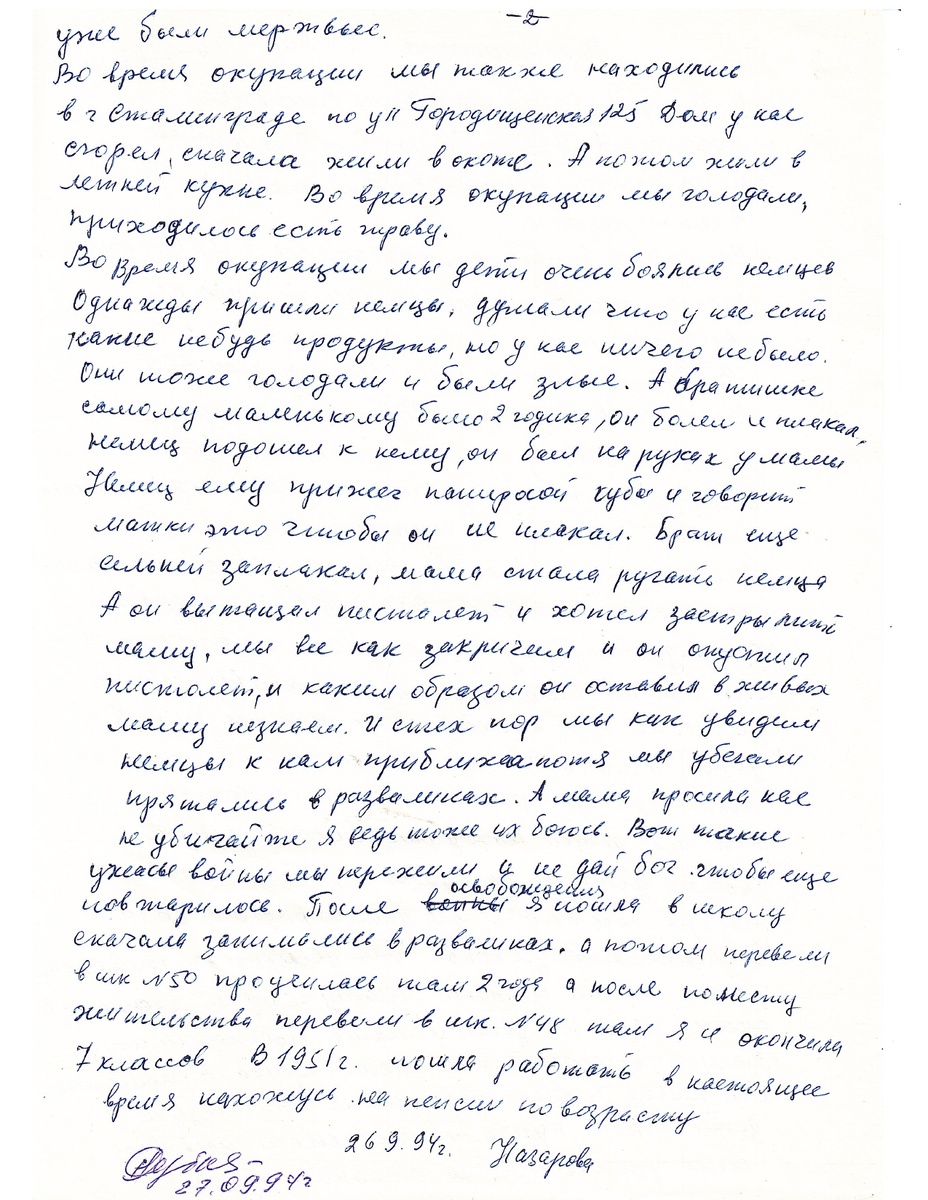 -2-
уже были мертвые.
Во время окупации мы также находились
в г Сталинграде по ул Городищенская 125 Дом у нас
сгорел, сначала жили в окопе. А потом жили в
летней кухне. Во время окупации мы голодали,
приходилось есть траву.
Во время окупации мы дети очень боялись немцев
Однажды пришли немцы, думали что у нас есть
какие небудь продукты, но у нас ничего небыло.
Они тоже голодали и были злые. А братишке
самому маленькому было 2 годика, он болел и плакал,
немец подошел к нему, он был на руках у мамы
Немец ему прижег папиросой губы и говорит
матки это чтобы он не плакал. Брат еще
сильней заплакал, мама стала ругать немца
А он вытащил пистолет и хотел застрылить
маму, мы все как закричим и он опустил
пистолет, и каким образом он оставил в живых
маму незнаем. И стех пор мы как увидим
немцы к нам приближаются мы убегали
прятались в развалинах. А мама просила нас
не убигайте я ведь тоже их боюсь. Вот такие
ужасы войны мы пережили и не дай бог чтобы еще
повтарилось. После освобождения я пошла в школу
сначала занимались в развалинах. а потом перевели
в шк №50 проучилась там 2 года а после по месту
жительства перевели в шк. №48 там я и окончила
7 классов В 1951г. пошла работать в настоящее
время нахожусь на пенсии по возрасту
26 9. 94г. Назарова
27.09.94г